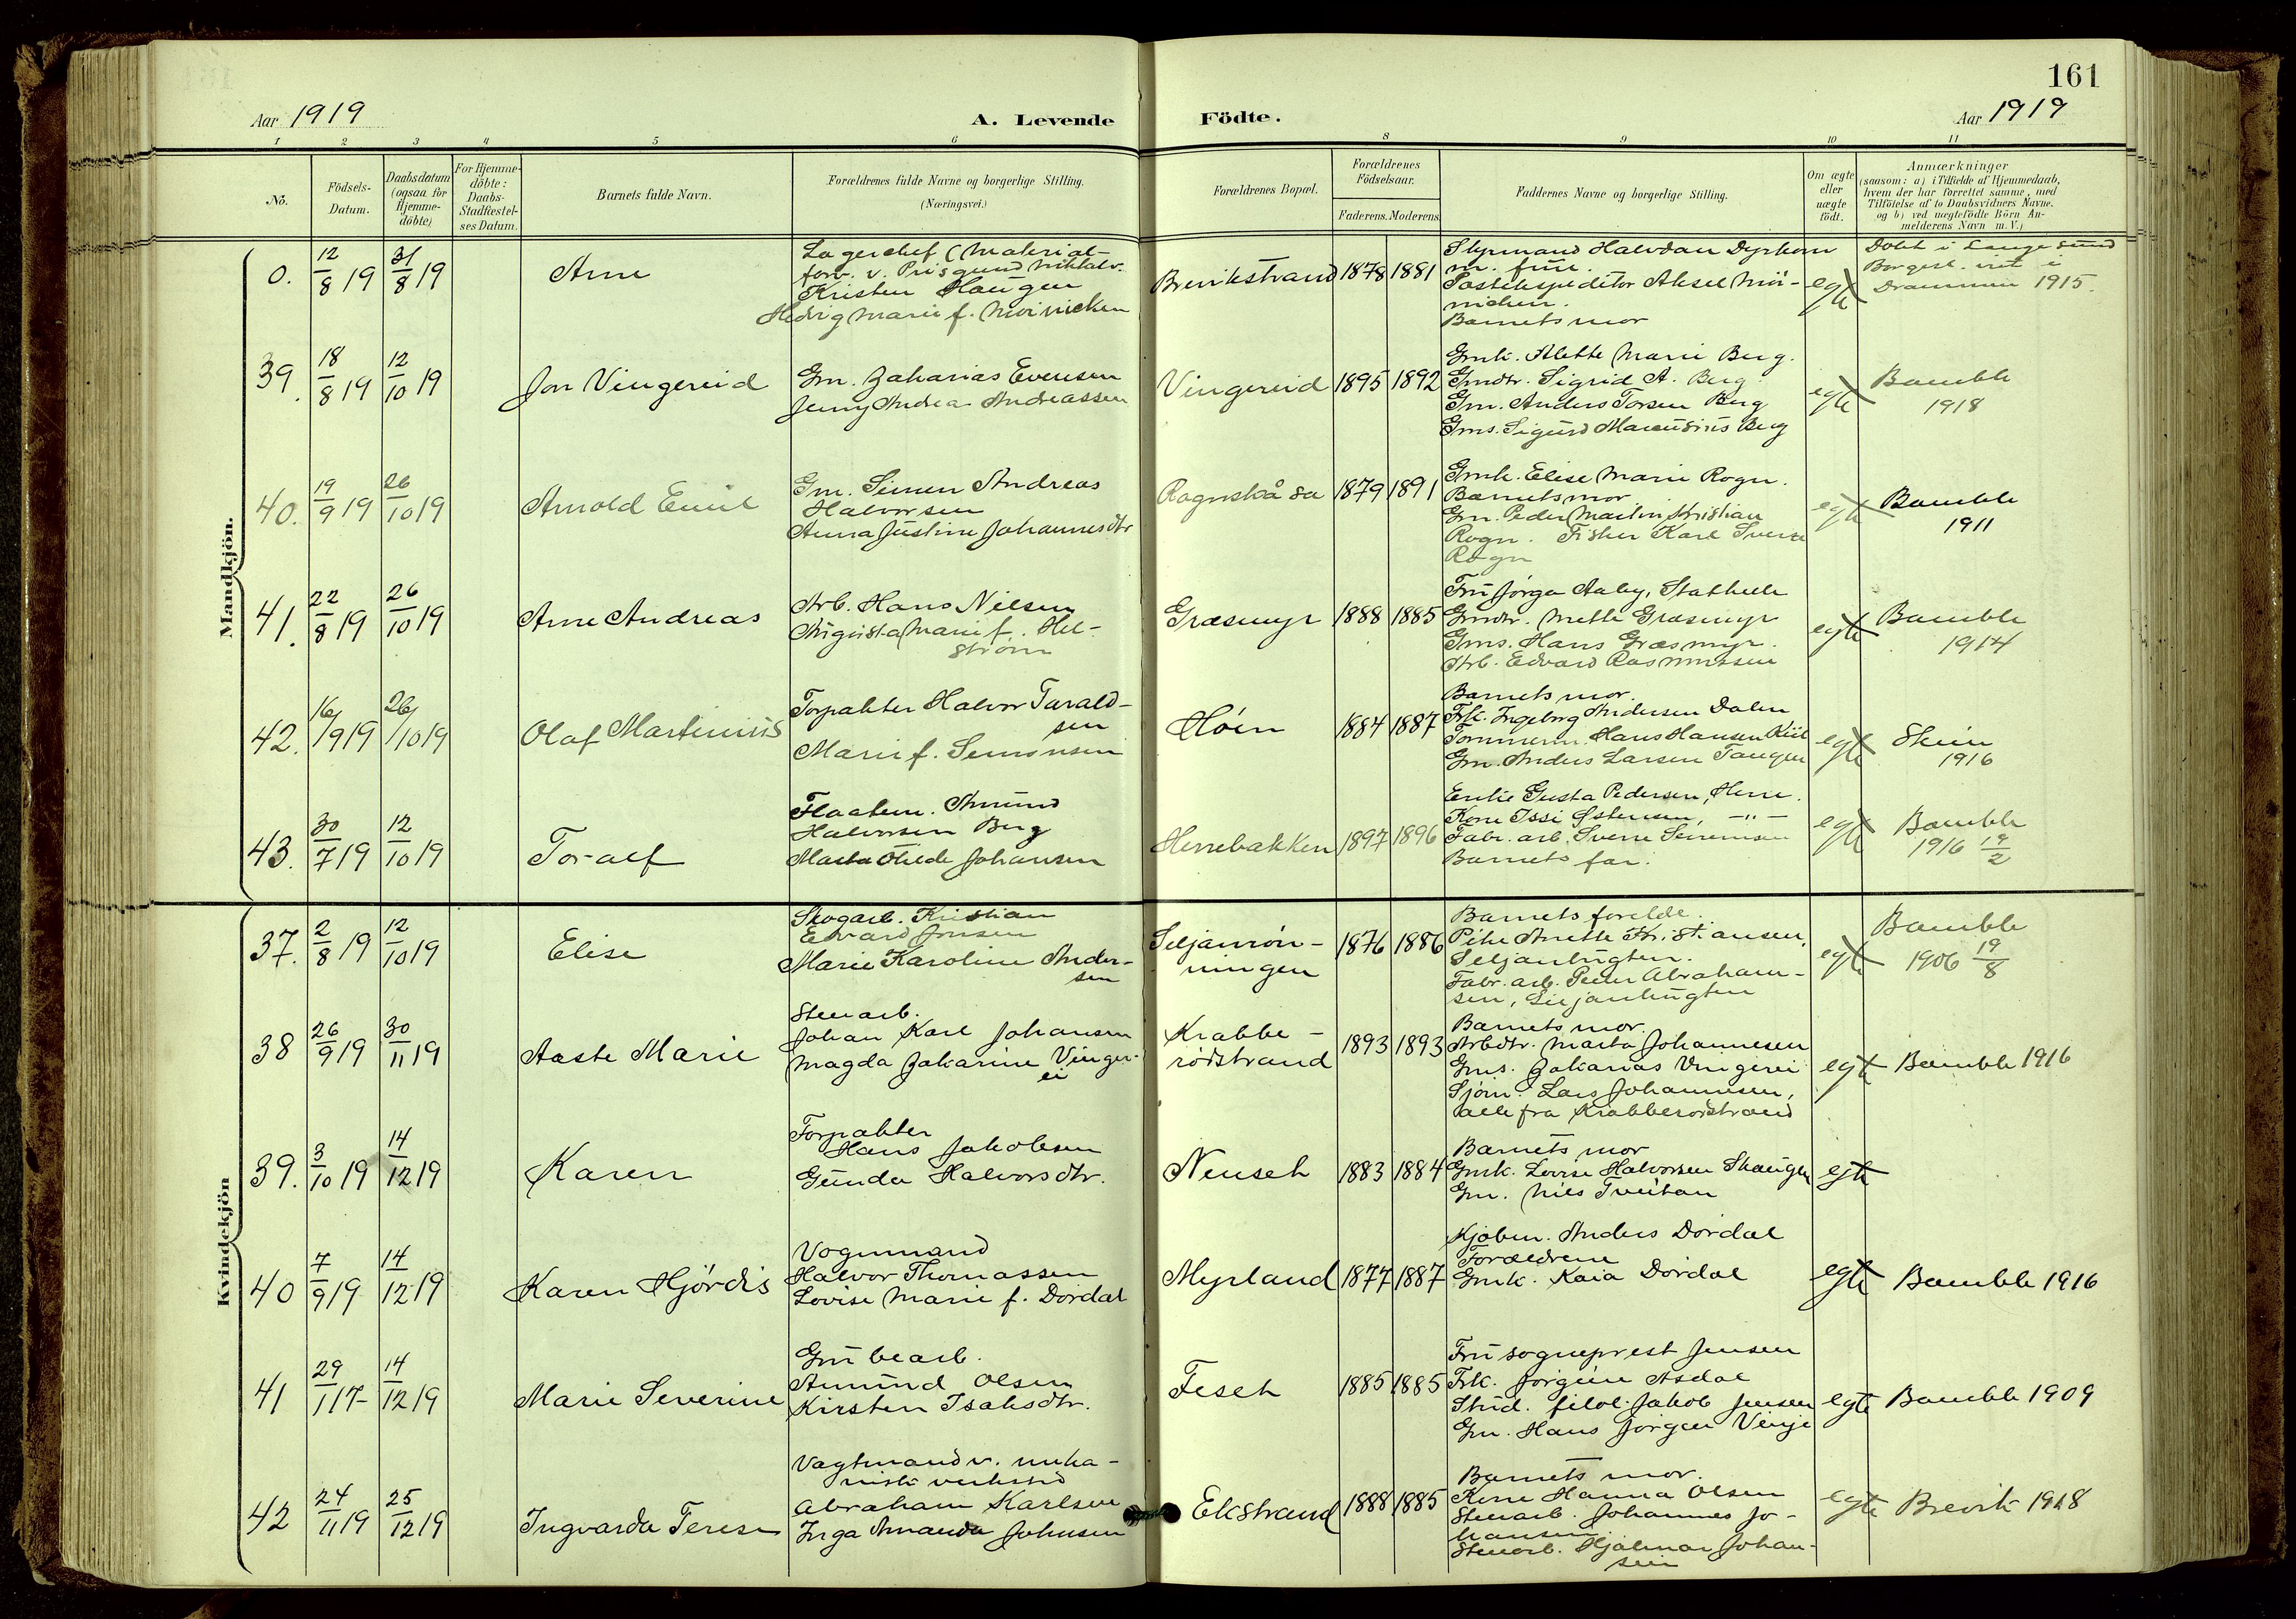 161
Aar 1919
A. Levende Födte.
Aar 1919
1 2 3 4 5 6 8 9 10 11
No.
Födsels-Datum.
Daabsdatum (ogsaa for Hjemme-döbte)
For Hjemme-döbte: Daabs-Stadfæstel-ses Datum.
Barnets fulde Navn.
Forældrenes fulde Navne og borgerlige Stilling.
(Næringsvei.)
Forældrenes Bopæl.
Forældrenes Födselsaar.
Faderens. Moderens
Faddernes Navne og borgerlige Stilling.
Om ægte eller uægte födt.
Anmærkninger
(saasom: a) i Tilfælde af Hjemmedaab,
hvem der har forrettet samme, med
Tilföielse af to Daabsvidners Navne.
og b) ved uægtefödte Börn An-
melderens Navn m.V.)
Mandkjön.
0. 12/8 19 31/8 19 Arne
Lagerchef (Material-
forv. v.
Kristen Haugen
Hedvig Marie f. Møinicken
Brevikstrand 1878 1881
Styrmand Halvdan Dyrhorn
m. frue.
Postekspeditør Aksel Møi-
nichen.
Barnets mor
egte
Døbt i Langesund
Borgerl. viet i
Drammen 1915.
39. 18/8 19 12/10 19 Jon Vingereid
Gm. Zaharias Evensen
Jenny Andrea Andreassen
Vingereid 1895 1892
Gmk. Alette Marie Berg.
Gmdtr. Sigrid A. Berg.
Gm. Anders Torsen Berg
Gms. Sigurd Marcusius Berg
egte
Bamble
1918
40. 19/9 19 26/10 19 Arnold Emil
Gm. Simen Andreas
Halvorsen
Anna Justine Johannesdtr
Rognskåsa 1879 1891
Gmk. Elise Marie Rogn.
Barnets mor
Gm. Peder Martin Kristian
Rogn. Fisker Karl Sverre
Rogn
egte
Bamble
1911
41. 22/8 19 26/10 19 Arne Andreas
Arb. Hans Nilsen
Augusta Marie f. Hel-
strøm
Græsmyr 1888 1885
Fru Jørga Aaby, Stathelle
Gmdtr. Mette Græsmyr
Gms. Hans Græsmyr.
Arb. Edvard Rasmussen
egte
Bamble
1914
42. 16/9 19 26/10 19 Olaf Martinius
Forpakter Halvor Tarald-
sen
Marie f. Simonsen
Høen 1884 1887
Barnets mor.
Frk. Ingeborg Andersen Dalen
Tømmerm. Hans Hansen Kiil
Gm. Anders Larsen Tangen
egte
Skien
1916
43. 30/7 19 12/10 19 Toralf
Flaatem. Amund
Halvorsen Berg
Marta Otilde Johansen
Herrebakken 1897 1896
Enke Gusta Pedersen, Herre.
Kone Issi Østensen, -"-
Fabr. arb. Sverre Simensen
Barnets far.
egte
Bamble
1916 19/2
Kvindekjön
37. 2/8 19 12/10 19 Elise
Skogarb. Kristian
Edvard Jonsen
Marie Karoline Ander-
sen
Seljanrøn-
ningen
1876 1886
Barnets forelde.
Pike Anette Kristiansen,
Seljanbugten.
Fabr. arb. Peder Abraham-
sen, Seljanbugten
egte
Bamble
1906 19/8
38 26/9 19 30/11 19 Aaste Marie
Stenarb.
Johan Karl Johansen
Magda Zakarine Vinger-
ei
Krabbe-
rødstrand
1893 1893
Barnets mor.
Arbdtr. Marta Johannesen
Gms. Zakarias Vingerei
Sjøm. Lars Johannesen,
alle fra Krabberødstrand
egte
Bamble 1916
39. 3/10 19 14/12 19 Karen
Forpakter
Hans Jakobsen
Gunda Halvorsdtr.
Nenset 1883 1884
Barnets mor
Gmk. Lovise Halvorsen Skaugen
Gm. Nils Tveitan
egte
40 7/9 19 14/12 19 Karen Hjørdis
Vognmand
Halvor Thomassen
Lovise Marie f. Dørdal
Myrland 1877 1887
Kjøbm. Anders Dørdal
Forældrene
Gmk. Kaia Dørdal
egte
Bamble 1916
41 29/11 17- 14/12 19 Marie Severine
Grubearb.
Amund Olsen
Kirsten Isaksdtr.
Feset 1885 1885
Fru sogneprest Jensen
Frk. Jørgine Asdal
Stud. filol. Jakob Jensen
Gm. Hans Jørgen Vinje
egte
Bamble 1909
42 24/11 19 25/12 19 Ingvarda Terese
Vagtmand v. meka-
nisk verksted
Abraham Karlsen
Inga Amanda Johnsen
Ekstrand 1888 1885
Barnets mor.
Kone Hanna Olsen
Stenarb. Johannes Jo-
hansen
Stenarb. Hjalmar Johan-
sen
egte
Brevik 1918